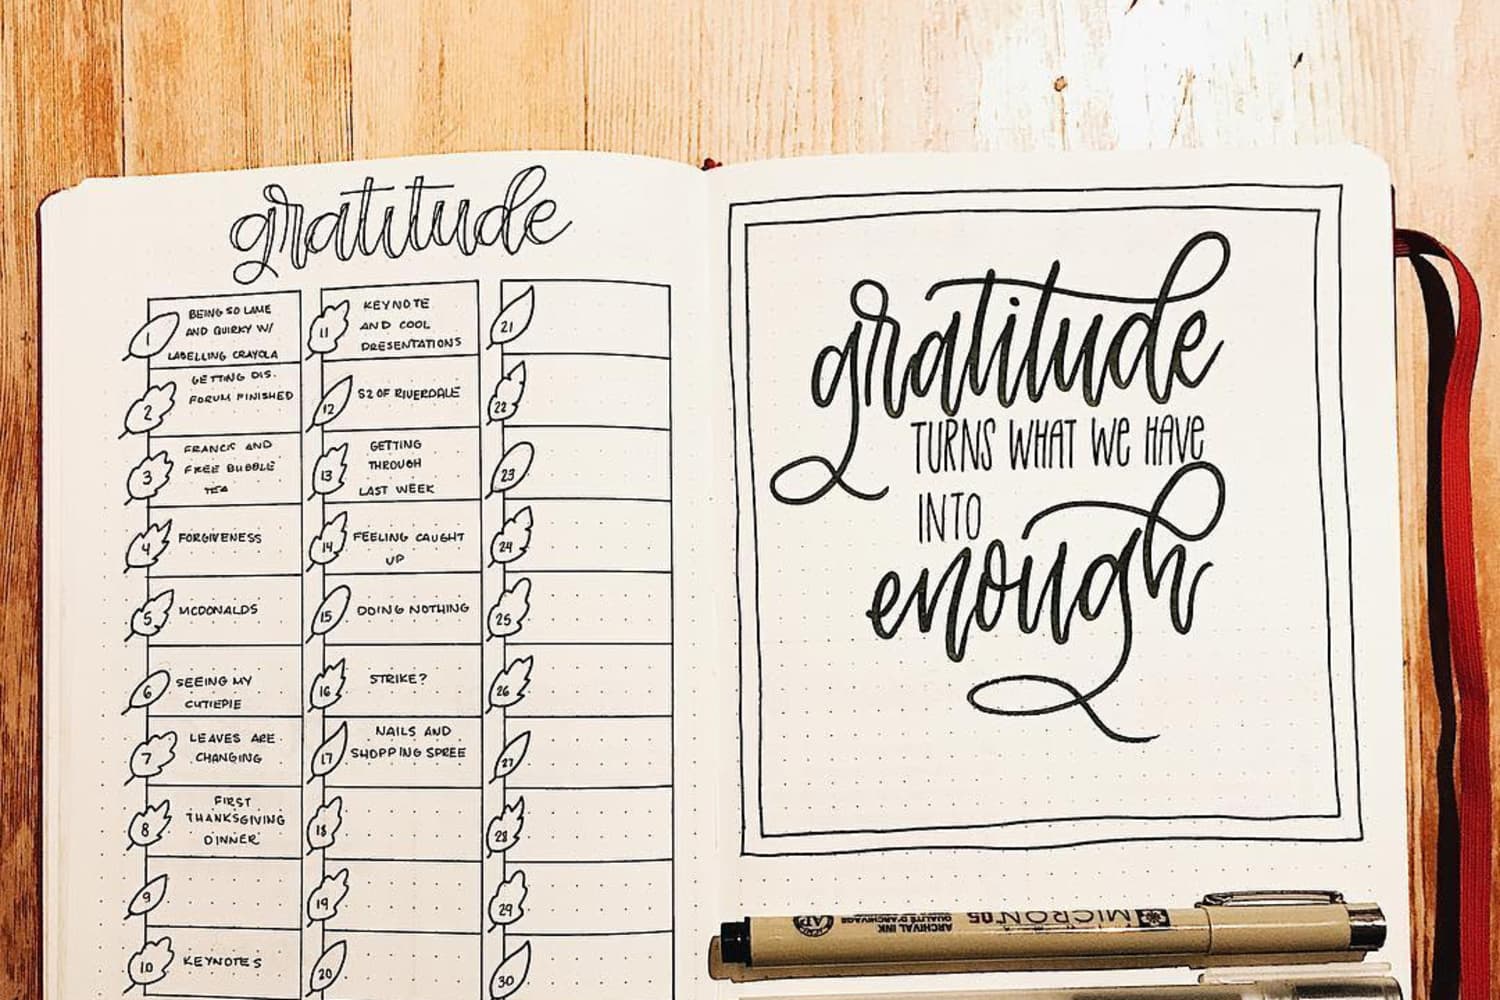 gratitude
1
BEING SO LAME
AND QUIRKY W/
LABELLING CRAYOLA
2
GETTING DIS.
FORUM FINISHED
3
FRANCIS AND
FREE BUBBLE
TEA
4
FORGIVENESS
5
MCDONALDS
6
SEEING MY
CUTIEPIE
7
LEAVES ARE
CHANGING
8
FIRST
THANKSGIVING
DINNER
9
10
KEYNOTES
11
KEYNOTE
AND COOL
PRESENTATIONS
12
S2 OF RIVERDALE
13
GETTING
THROUGH
LAST WEEK
14
FEELING CAUGHT
UP
15
DOING NOTHING
16
STRIKE?
17
NAILS AND
SHOPPING SPREE
18
19
20
21
22
23
24
25
26
27
28
29
30
gratitude
TURNS WHAT WE HAVE
INTO
enough
MICRON 05
ARCHIVAL INK
QUALITÉ D'ARCHIVAGE